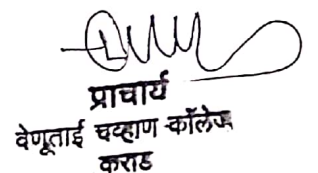 प्राचार्य
वेणूताई चव्हाण कॉलेज
कराड